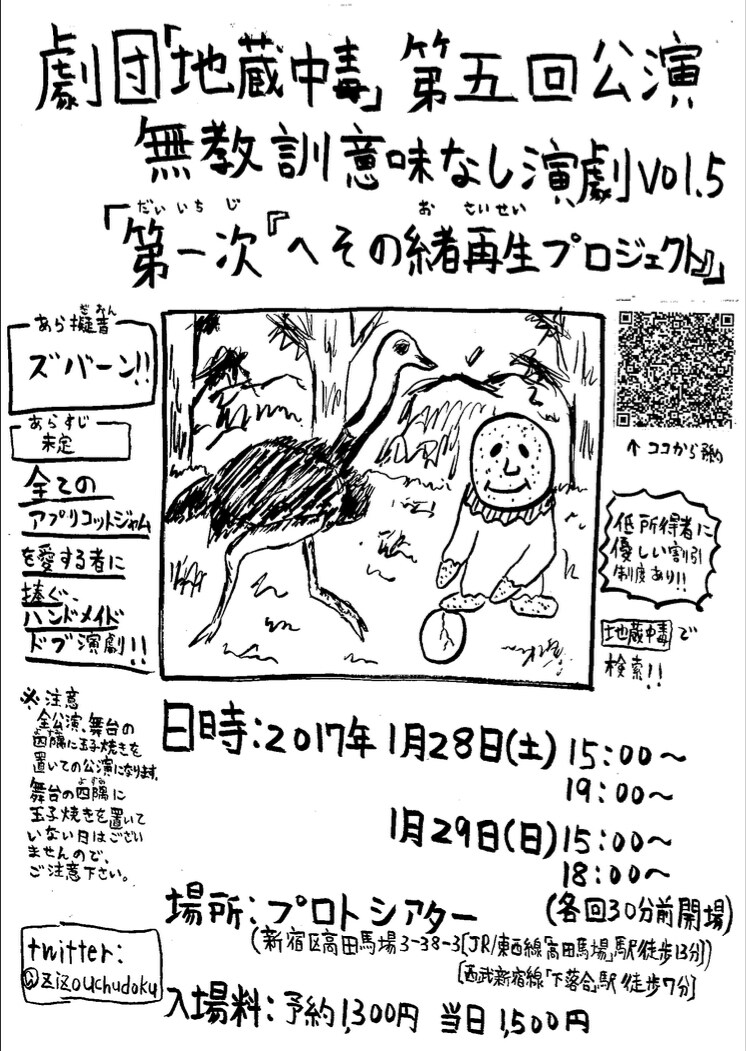 劇団「地蔵中毒」第五回公演
無教訓意味なし演劇vol.5
だいいちじ おさいせい
「第一次『へその緒再生プロジェクト』」
ぎおん
あら擬音
ズバーン!!
あらすじ
未定
全ての
アプリコットジャム
を愛する者に
捧ぐ、
ハンドメイド
ドブ演劇!!
↑ココから予約
低所得者に
優しい割引
制度あり!!
地蔵中毒で
検索!!
※注意
全公演、舞台の
四隅に玉子焼きを
置いての公演になります。
よすみ
舞台の四隅に
玉子焼きを置いて
いない日はござい
ませんので、
ご注意下さい。
日時:2017年1月28日(土)15:00〜
19:00〜
1月29日(日)15:00〜
18:00〜
(各回30分前開場)
場所:プロトシアター
(新宿区高田馬場3-38-3[JR/東西線「高田馬場」駅徒歩13分])
[西武新宿線「下落合」駅徒歩7分]
入場料:予約1,300円 当日1,500円
twitter:
@zizouchudoku